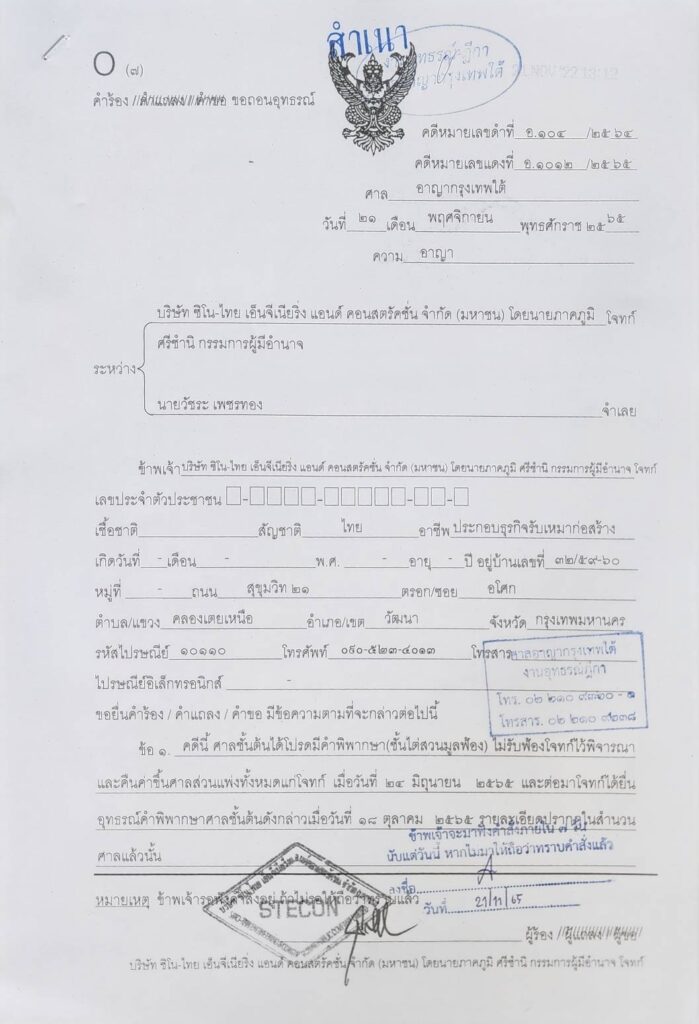 สำเนา
๐ (๗)
คำร้อง / คำแถลง / คำขอ ขอถอนอุทธรณ์
คดีหมายเลขดำที่ อ.๑๐๔ /๒๕๖๔
คดีหมายเลขแดงที่ อ.๑๐๑๒ /๒๕๖๕
ศาล อาญากรุงเทพใต้
วันที่ ๒๑ เดือน พฤศจิกายน พุทธศักราช ๒๕๖๕
ความ อาญา
บริษัท ซิโน-ไทย เอ็นจีเนียริ่ง แอนด์ คอนสตรัคชั่น จำกัด (มหาชน) โดยนายภาคภูมิ โจทก์
ศรีชำนิ กรรมการผู้มีอำนาจ
ระหว่าง
นายวัชระ เพชรทอง จำเลย
ข้าพเจ้า บริษัท ซิโน-ไทย เอ็นจีเนียริ่ง แอนด์ คอนสตรัคชั่น จำกัด (มหาชน) โดยนายภาคภูมิ ศรีชำนิ กรรมการผู้มีอำนาจ โจทก์
เลขประจำตัวประชาชน
เชื้อชาติ สัญชาติ ไทย อาชีพ ประกอบธุรกิจรับเหมาก่อสร้าง
เกิดวันที่ - เดือน - พ.ศ. - อายุ - ปี อยู่บ้านเลขที่ ๓๒/๕๙-๖๐
หมู่ที่ - ถนน สุขุมวิท ๒๑ ตรอก/ซอย อโศก
ตำบล/แขวง คลองเตยเหนือ อำเภอ/เขต วัฒนา จังหวัด กรุงเทพมหานคร
รหัสไปรษณีย์ ๑๐๑๑๐ โทรศัพท์ ๐๙๐-๕๒๓-๔๐๑๓ โทรสาร
ศาลอาญากรุงเทพใต้
งานอุทธรณ์ฎีกา
ไปรษณีย์อิเล็กทรอนิกส์ -
โทรสาร. ๐๒ ๒๑๐ ๙๒๓๘
ขอยื่นคำร้อง / คำแถลง / คำขอ มีข้อความตามที่จะกล่าวต่อไปนี้
ข้อ ๑. คดีนี้ ศาลชั้นต้นได้โปรดมีคำพิพากษา(ชั้นไต่สวนมูลฟ้อง) ไม่รับฟ้องโจทก์ไว้พิจารณา
และคืนค่าขึ้นศาลส่วนแพ่งทั้งหมดแก่โจทก์ เมื่อวันที่ ๒๔ มิถุนายน ๒๕๖๕ และต่อมาโจทก์ได้ยื่น
อุทธรณ์คำพิพากษาศาลชั้นต้นดังกล่าวเมื่อวันที่ ๑๘ ตุลาคม ๒๕๖๕ รายละเอียดปรากฏในสำนวน
ศาลแล้วนั้น
ข้าพเจ้าจะมาฟังคำสั่งภายใน ๗ วัน
นับแต่วันนี้ หากไม่มาให้ถือว่าทราบคำสั่งแล้ว
ลงชื่อ
วันที่ 21/11/65
หมายเหตุ ข้าพเจ้ารอฟังคำสั่งอยู่ ถ้าไม่รอให้ถือว่าทราบแล้ว
STECON
ผู้ร้อง / ผู้แถลง / ผู้ขอ
บริษัท ซิโน-ไทย เอ็นจีเนียริ่ง แอนด์ คอนสตรัคชั่น จำกัด (มหาชน) โดยนายภาคภูมิ ศรีชำนิ กรรมการผู้มีอำนาจ โจทก์